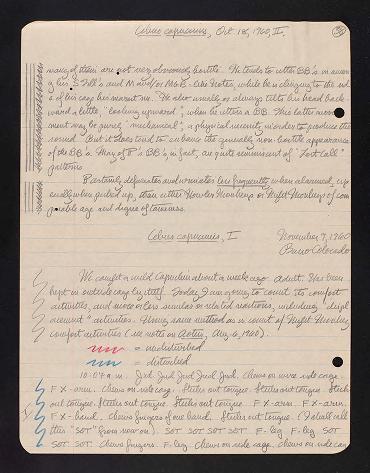 Cebus capucinus, Oct. 18, 1960, II.
many of them are not very obviously hostile. He tends to utter BB's in
his and M and/or Mo B-like Notes, while he is clinging to the side
of his cage his nearest me. He also usually or always tilts his head back-
ward a little, "looking upward", when he utters a BB. This latter move-
ment may be purely "mechanical", a physical necessity in order to produce the
sound. But it does tend to enhance the generally non-hostile appearance
of the BB's. Many of B's BB's, in fact, are quite reminiscent of "Lost Call"
patterns.
B certainly defecates and urinates less frequently when alarmed, esp-
ecially when picked up, than either Howler Monkeys or Night Monkeys of com-
parable age and degree of tameness.
Cebus capucinus, I
November 9, 1960
Barro Colorado
We caught a wild Capuchin about a week ago. Adult. Has been
kept in outside cage by itself. Today I am going to count its comfort
activities, and more or less similar or related reactions, including "displ
acement" activities. Using same method as in count of Night Monkey
comfort activities (see notes on Aotus, Aug. 6, 1960).
= undisturbed
= disturbed
10:07 a.m. Jrd Jrd Jrd Jrd Jrd. Chews on wire side cage.
FX-arm. Chews on side cage. Sticks out tongue. Sticks out tongue. Stick
out tongue. Sticks out tongue. Sticks out tongue. FX-arm FX-arm.
FX-hand. Chews fingers of one hand. Sticks out tongue. (I shall call
this "SOT" from now on). SOT SOT SOT SOT F-leg F-leg SOT
SOT SOT. Chews fingers. F-leg. Chews on side cage. Chews on side cage